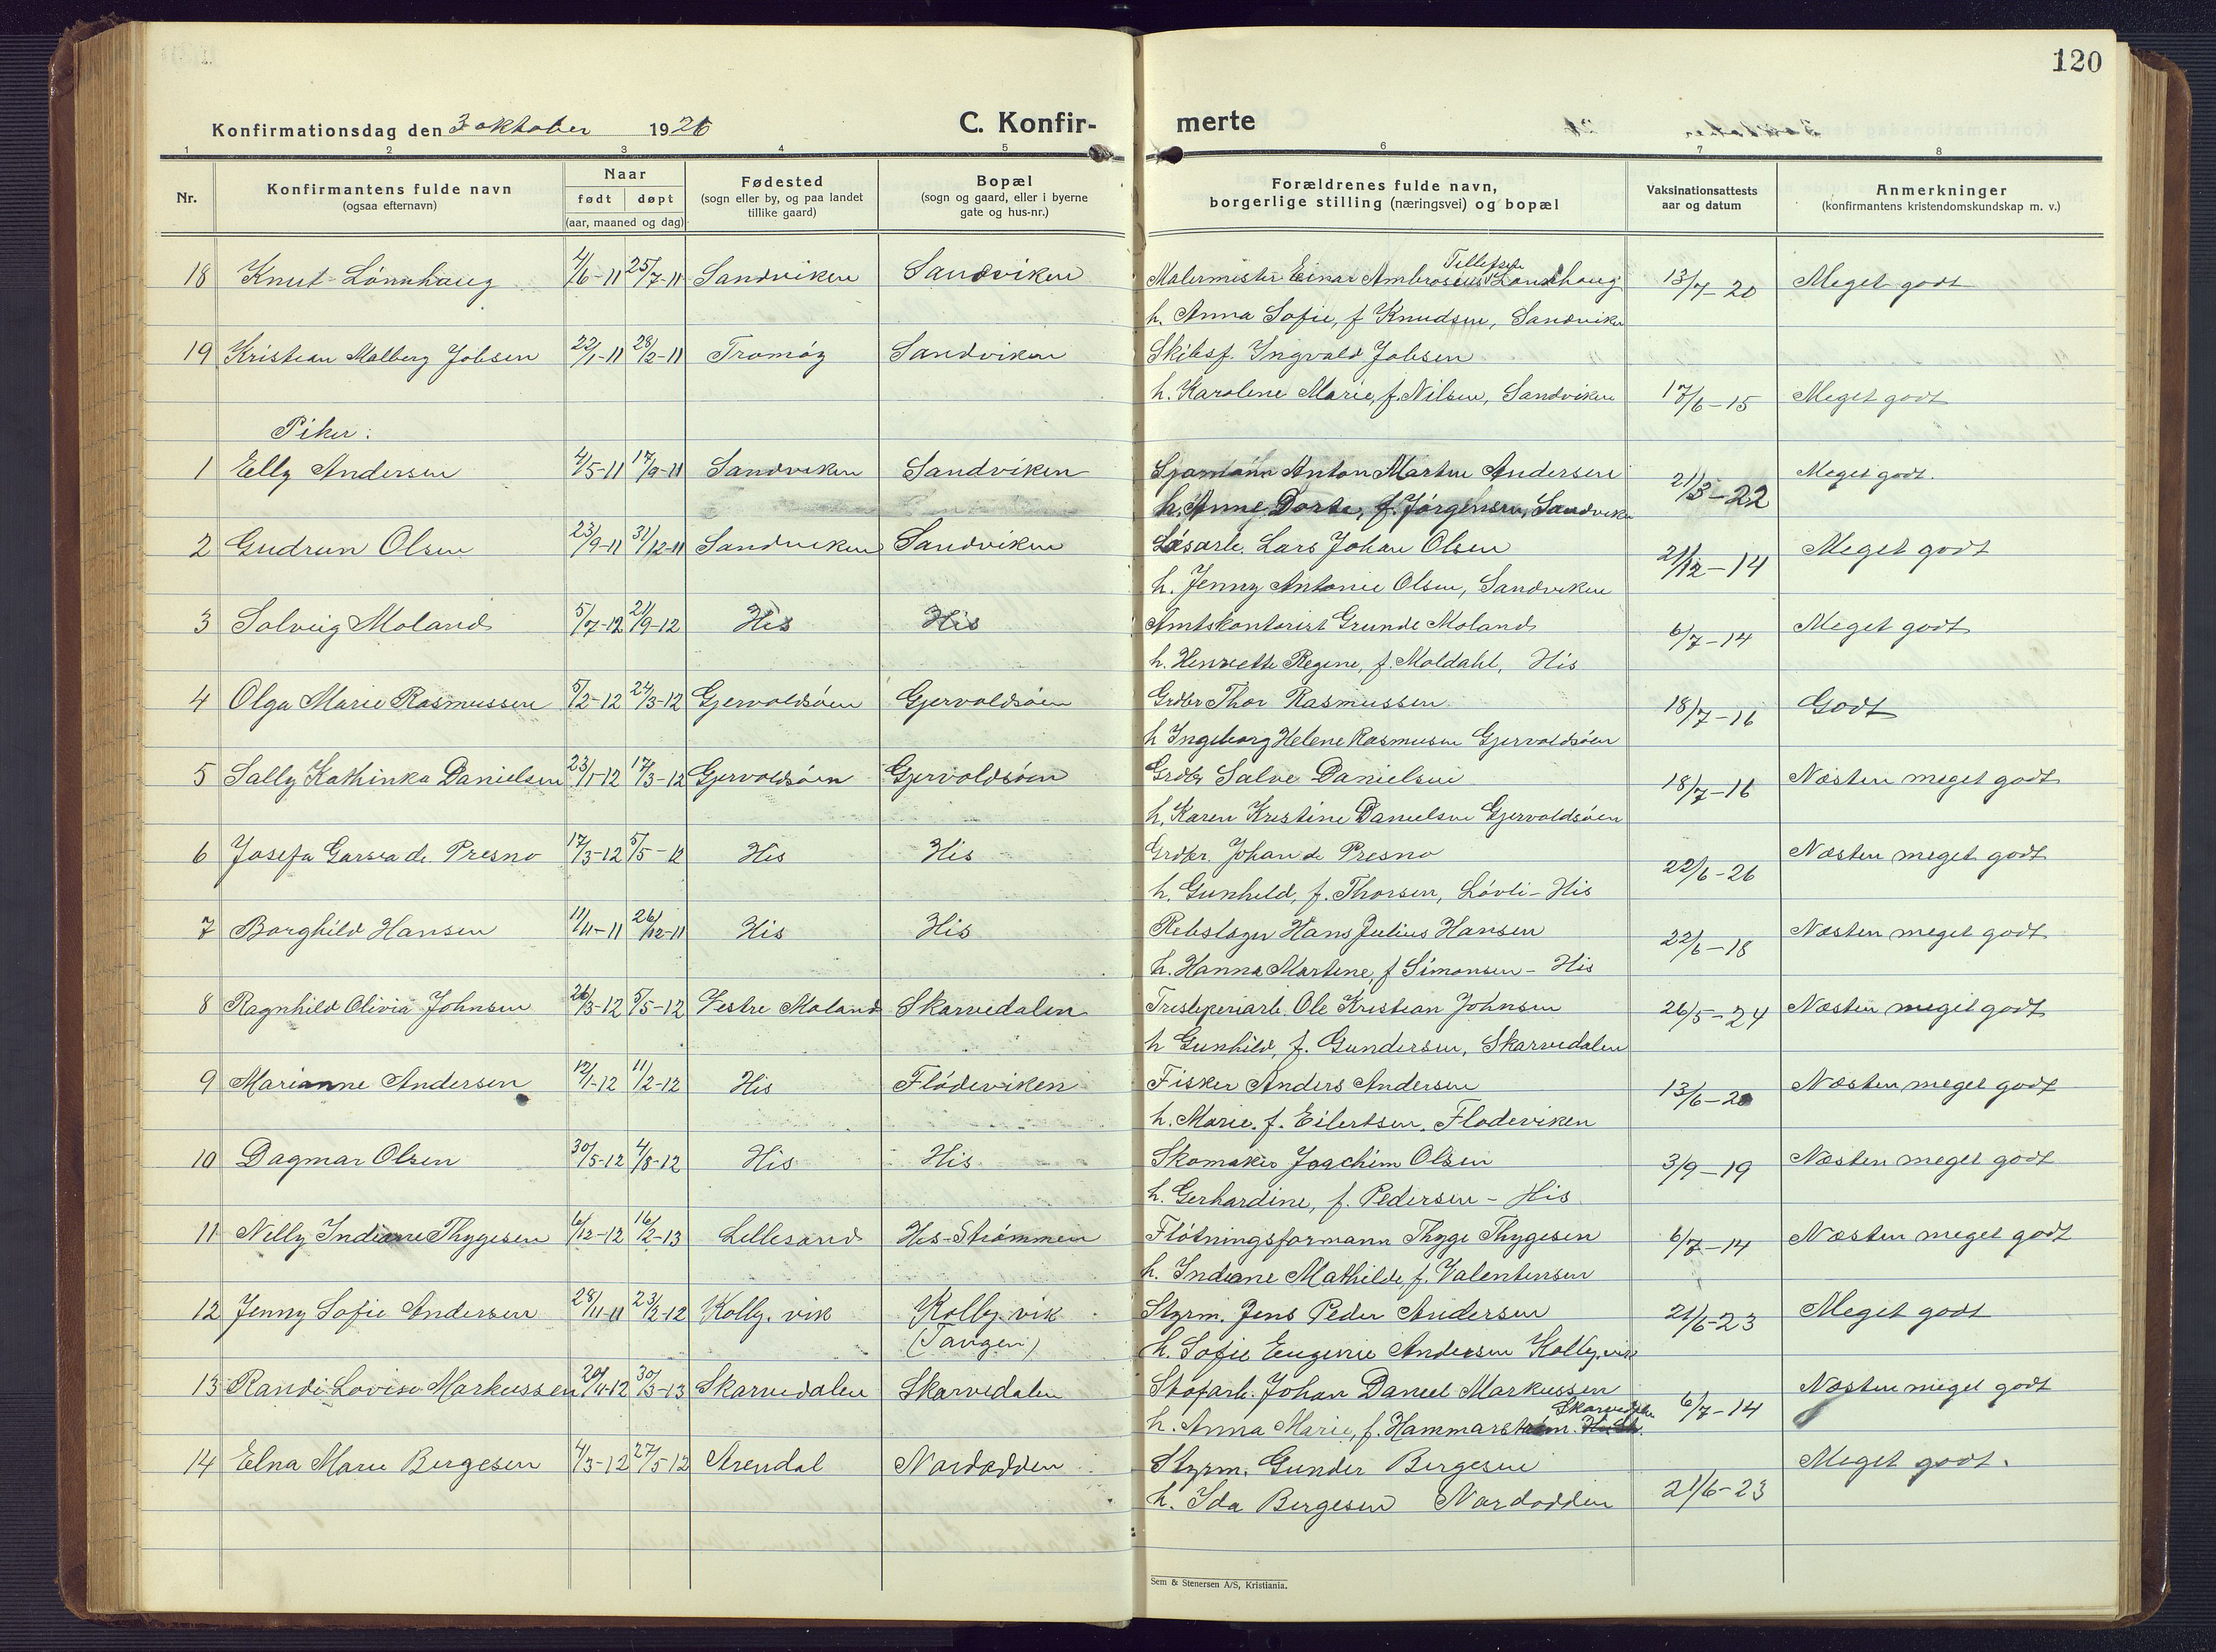 120
Konfirmationsdag den 3 oktober 1926
C. Konfir-
merte
1 2 3 4 5 6 7 8
Nr.
Konfirmantens fulde navn
(ogsaa efternavn)
Naar
født døpt
(aar, maaned og dag)
Fødested
(sogn eller by, og paa landet
tillike gaard)
Bopæl
(sogn og gaard, eller i byerne
gate og hus-nr.)
Forældrenes fulde navn,
borgerlige stilling (næringsvei) og bopæl
Vaksinationsattests
aar og datum
Anmerkninger
(konfirmantens kristendomskundskap m. v.)
Tellefsen
18 Knut Lønnhaug 4/6-11 25/7-11 Sandviken Sandviken Malermester Einar Ambrosius Lønnhaug 13/7-20 Meget godt
h. Anna Sofie, f. Knudsen, Sandviken
19 Kristian Malberg Jobsen 22/1-11 28/2-11 Tromöy Sandviken Skibsf. Ingvald Jobsen
h. Karoline Marie, f. Nilsen, Sandviken 17/6-15 Meget godt
Piker:
1 Elly Andersen 4/5-11 17/9-11 Sandviken Sandviken Sjømann Anton Martin Andersen 21/3-22 Meget godt.
h. Anne Dorte, f. Jörgensen, Sandviken
2 Gudrun Olsen 23/9-11 31/12-11 Sandviken Sandviken Løsarb. Lars Johan Olsen 21/12-14 Meget godt
h. Jenny Antonie Olsen, Sandviken
3 Solveig Moland 5/7-12 21/9-12 His His Amtskontorist Grunde Moland 6/7-14 Meget godt
h. Henriette Regine, f. Moldahl, His
4 Olga Marie Rasmussen 5/2-12 24/3-12 Gjervoldsöen Gjervoldsöen Grdbr Thor Rasmussen 18/7-16 Godt
h Ingeborg Helene Rasmusen Gjervoldsöen
5 Sally Kathinka Danielsen 23/1-12 17/3-12 Gjervoldsöen Gjervoldsöen Grdbr Salve Danielsen 18/7-16 Næsten meget godt
h. Karen Kristine Danielsen Gjervoldsöen
6 Josefa Garsea de Presno 17/3-12 5/5-12 His His Grdbr. Johan de Presno 22/6-26 Næsten meget godt
h. Gunhild, f. Thorsen, Lövli-His
7 Borghild Hansen 11/11-11 26/12-11 His His Rebslager Hans Julius Hansen 22/6-18 Næsten meget godt
h. Hanna Martine, f Simonsen - His
8 Ragnhild Olivia Johnsen 26/3-12 5/5-12 Vestre Moland Skarvedalen Tresliperiarb. Ole Kristian Johnsen 26/5-24 Næsten meget godt
h Gunhild, f. Gundersen, Skarvedalen
9 Marianne Andersen 12/1-12 11/2-12 His Flödeviken Fisker Anders Andersen 13/6-20 Næsten meget godt
h. Marie. f. Eilertsen, Flodeviken
10 Dagmar Olsen 30/5-12 4/8-12 His His Skomaker Joachim Olsen 3/9-19 Næsten meget godt
h. Gerhardine, f. Pedersen - His
11 Nelly Indiane Thygesen 6/12-12 16/2-13 Lillesand His-Strömmen Flötningsformann Thyge Thygesen 6/7-14 Næsten meget godt
h. Indiane Mathilde, f. Valentinsen
12 Jenny Sofie Andersen 28/11-11 23/2-12 Kolbj. vik Kolbj. vik Styrm. Jens Peder Andersen 21/6-23 Meget godt
(Tangen) h. Sofie Eugenie Andersen Kolbj. vik
13 Randi Lovise Markussen 20/11-12 30/3-13 Skarvedalen Skarvedalen Stofarb. Johan Daniel Markussen 6/7-14 Næsten meget godt
Skarvedalen
h. Anna Marie, f. Hammarström.
14 Elna Marie Bergesen 4/3-12 27/5-12 Arendal Nardodden Styrm. Gunder Bergesen 21/6-23 Meget godt.
h. Ida Bergesen Nardodden
Sem & Stenersen A/S, Kristiania.